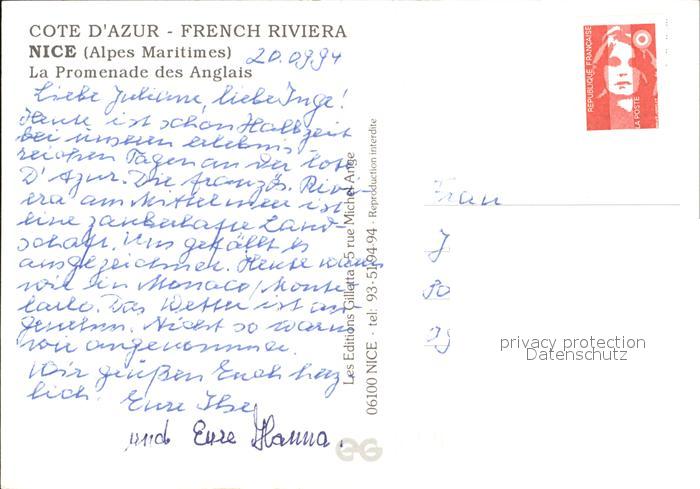 COTE D'AZUR - FRENCH RIVIERA
NICE (Alpes Maritimes)
20.09.94
La Promenade des Anglais
Liebe Juliane, liebe Inge!
Heute ist schon Halbzeit
bei unseren erlebnis-
reichen Tagen an der Cote
D'Azur. Die französ. Rivi-
era am Mittelmeer ist
eine zauberhafte Land-
schaft. Uns gefällt es
ausgezeichnet. Heute waren
wir in Monaco/Monte
Carlo. Das Wetter ist an-
genehm. Nicht so warm
wie angenommen.
Wir grüßen Euch herz-
lich. Eure Ilse
und Eure Hanna.
Les Editions Gilletta - 5 rue Michel-Ange
06100 NICE - tel: 93-51-94-94 - Reproduction interdite
REPUBLIQUE FRANÇAISE
LA POSTE
Frau
J
privacy protection
Datenschutz